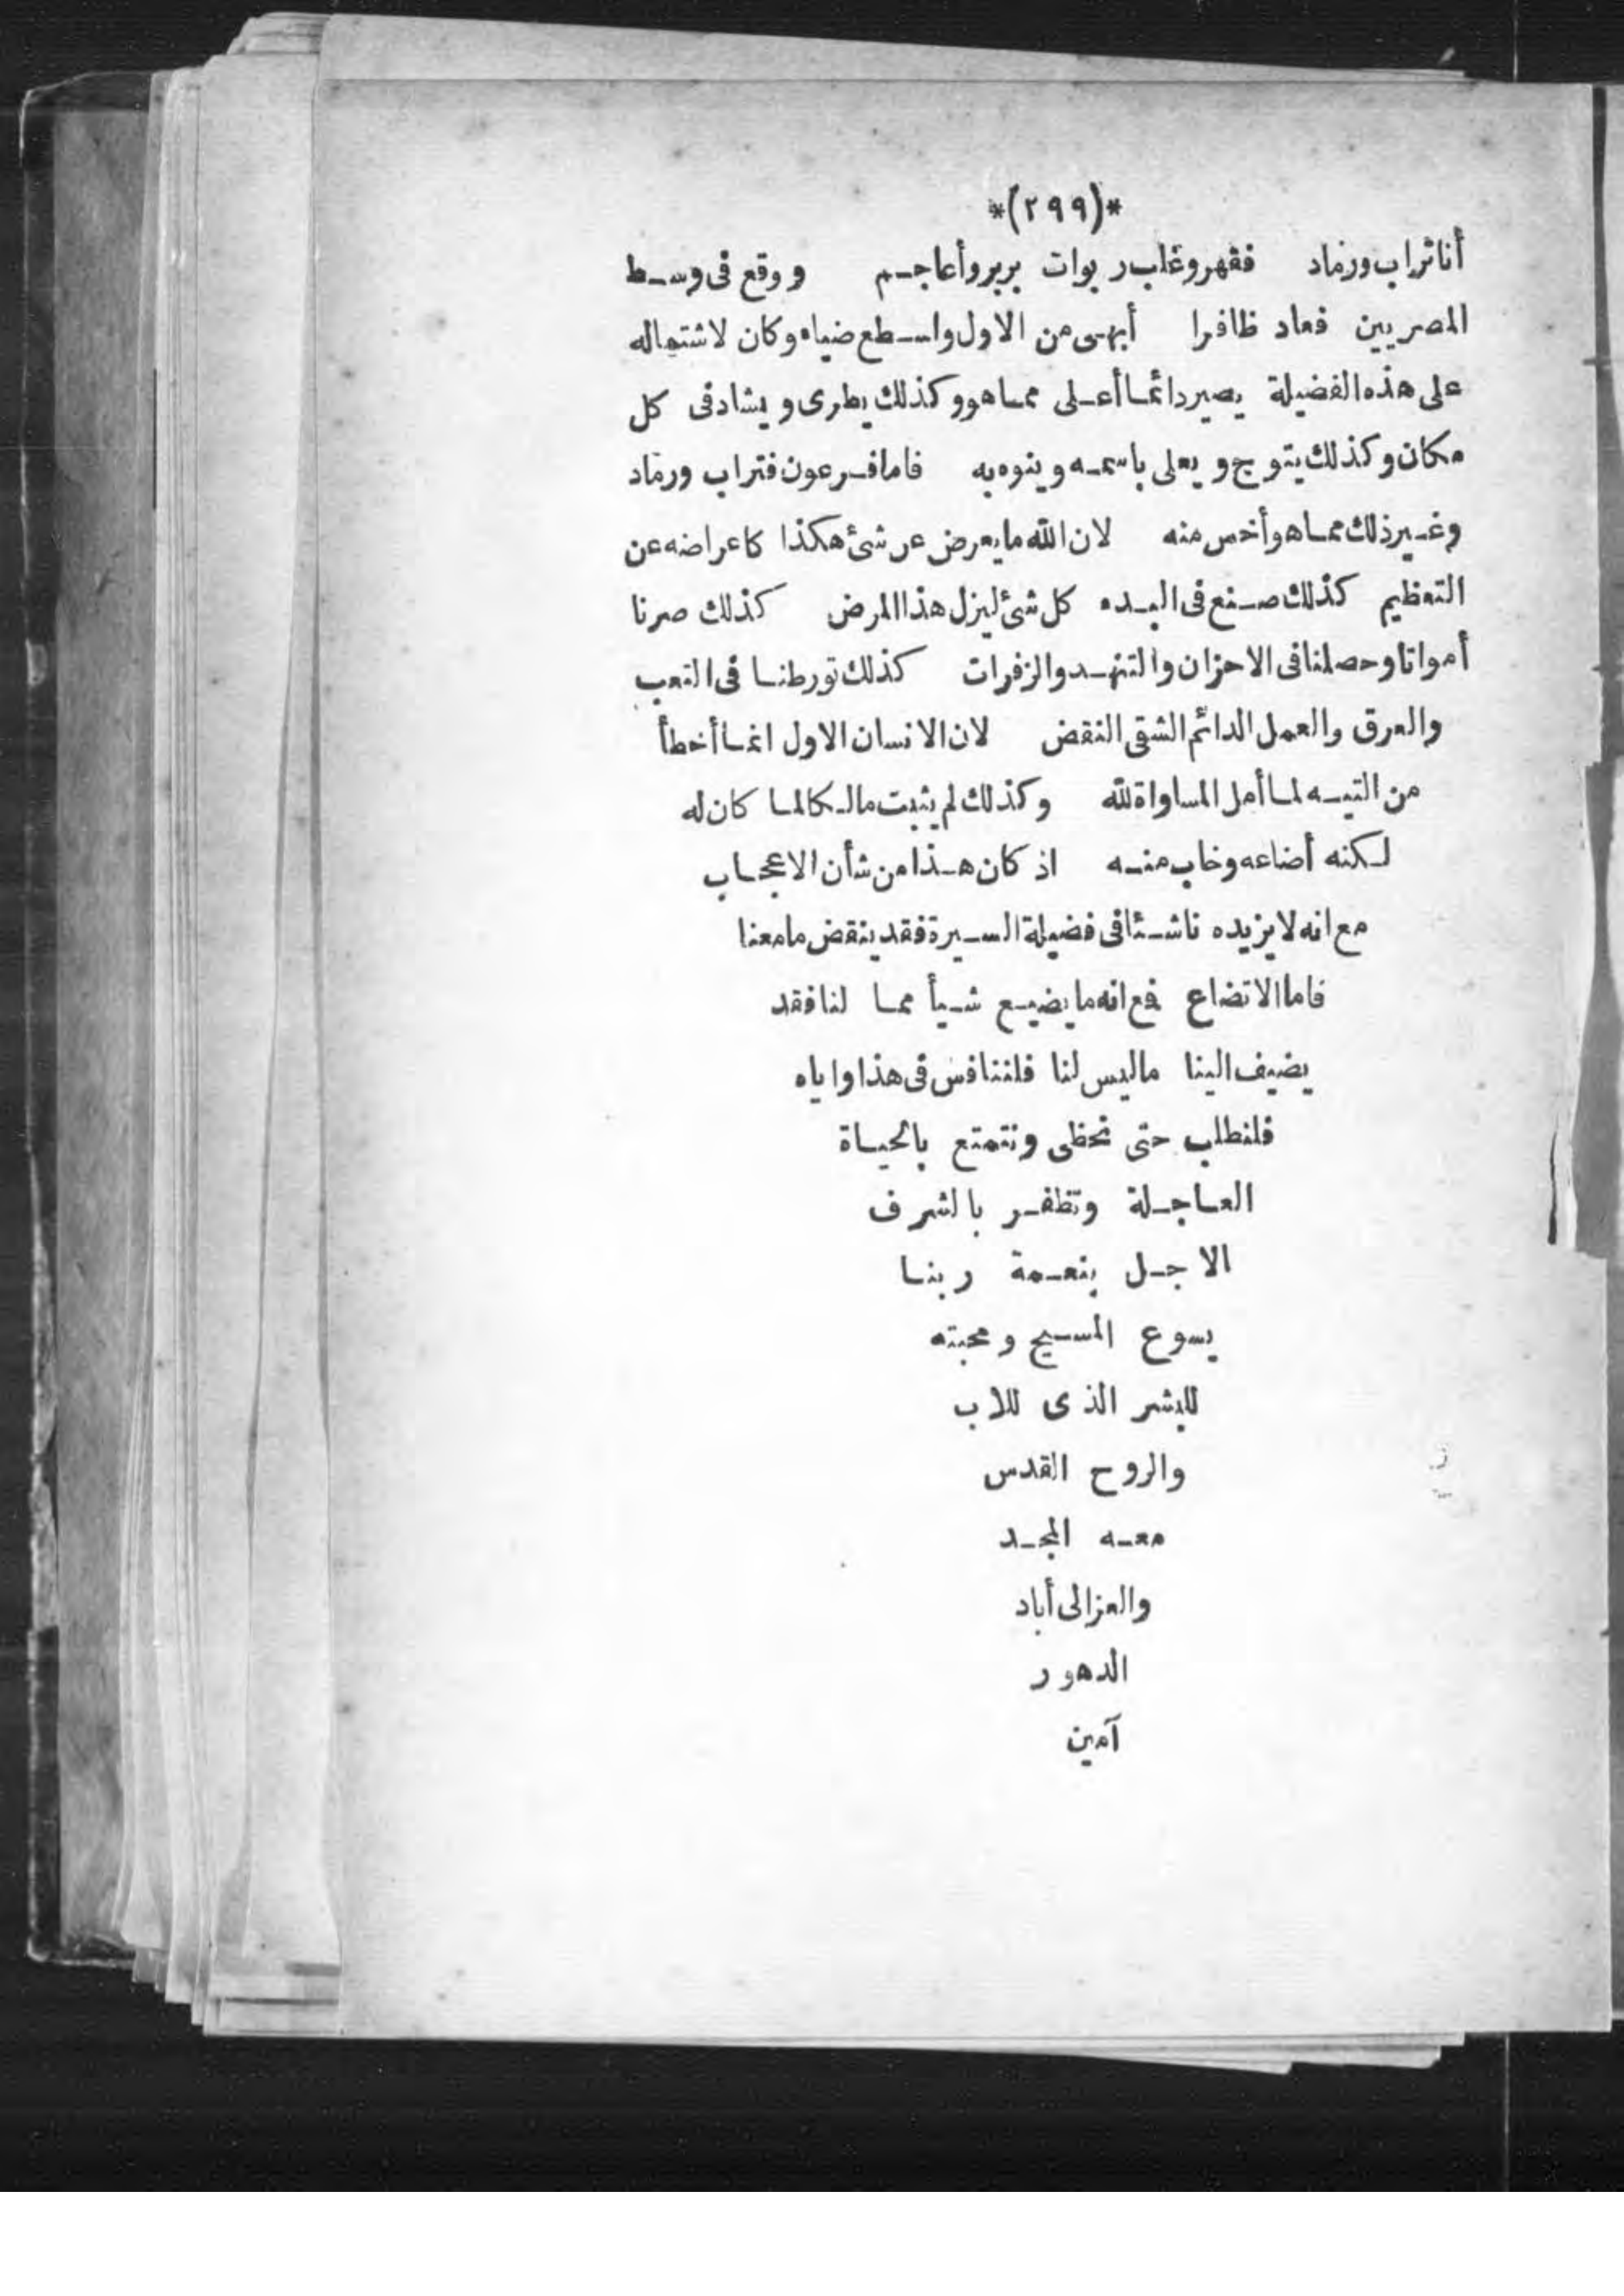 *(٢٩٩)*
أنا تراب ورماد فقهر وغلب ربوات بربر وأعاجم ووقع فى وسط
المصريين فعاد ظافرا أبهى من الاول واسطع ضياء وكان لاشتماله
على هذه الفضيلة يصير دائما أعلى مما هو وكذلك يطرى ويشاد فى كل
مكان وكذلك يتوج ويعلى باسمه وينوه به فاما فرعون فتراب ورماد
وغير ذلك مما هو أخس منه لان الله ما يعرض عن شئ هكذا كاعراضه عن
التعظيم كذلك صنع فى البدء كل شئ ليزل هذا المرض كذلك صرنا
أمواتا وحصلنا فى الاحزان والتنهد والزفرات كذلك تورطنا فى التعب
والعرق والعمل الدائم الشقى النقض لان الانسان الاول انما أخطأ
من التيه لما أمل المساواة لله وكذلك لم يثبت مالكا لما كان له
لكنه أضاعه وخاب منه اذ كان هذا من شأن الاعجاب
مع انه لا يزيده ناشئا فى فضيلة السيرة فقد ينقض ما معنا
فاما الاتضاع فمع انه ما يضيع شيأ مما لنا فقد
يضيف الينا ما ليس لنا فلنتنافس فى هذا واياه
فلنطلب حتى نحظى ونتمتع بالحياة
العاجلة ونظفر بالشرف
الاجل بنعمة ربنا
يسوع المسيح ومحبته
للبشر الذى للاب
والروح القدس
معه المجد
والعز الى أباد
الدهور
آمين